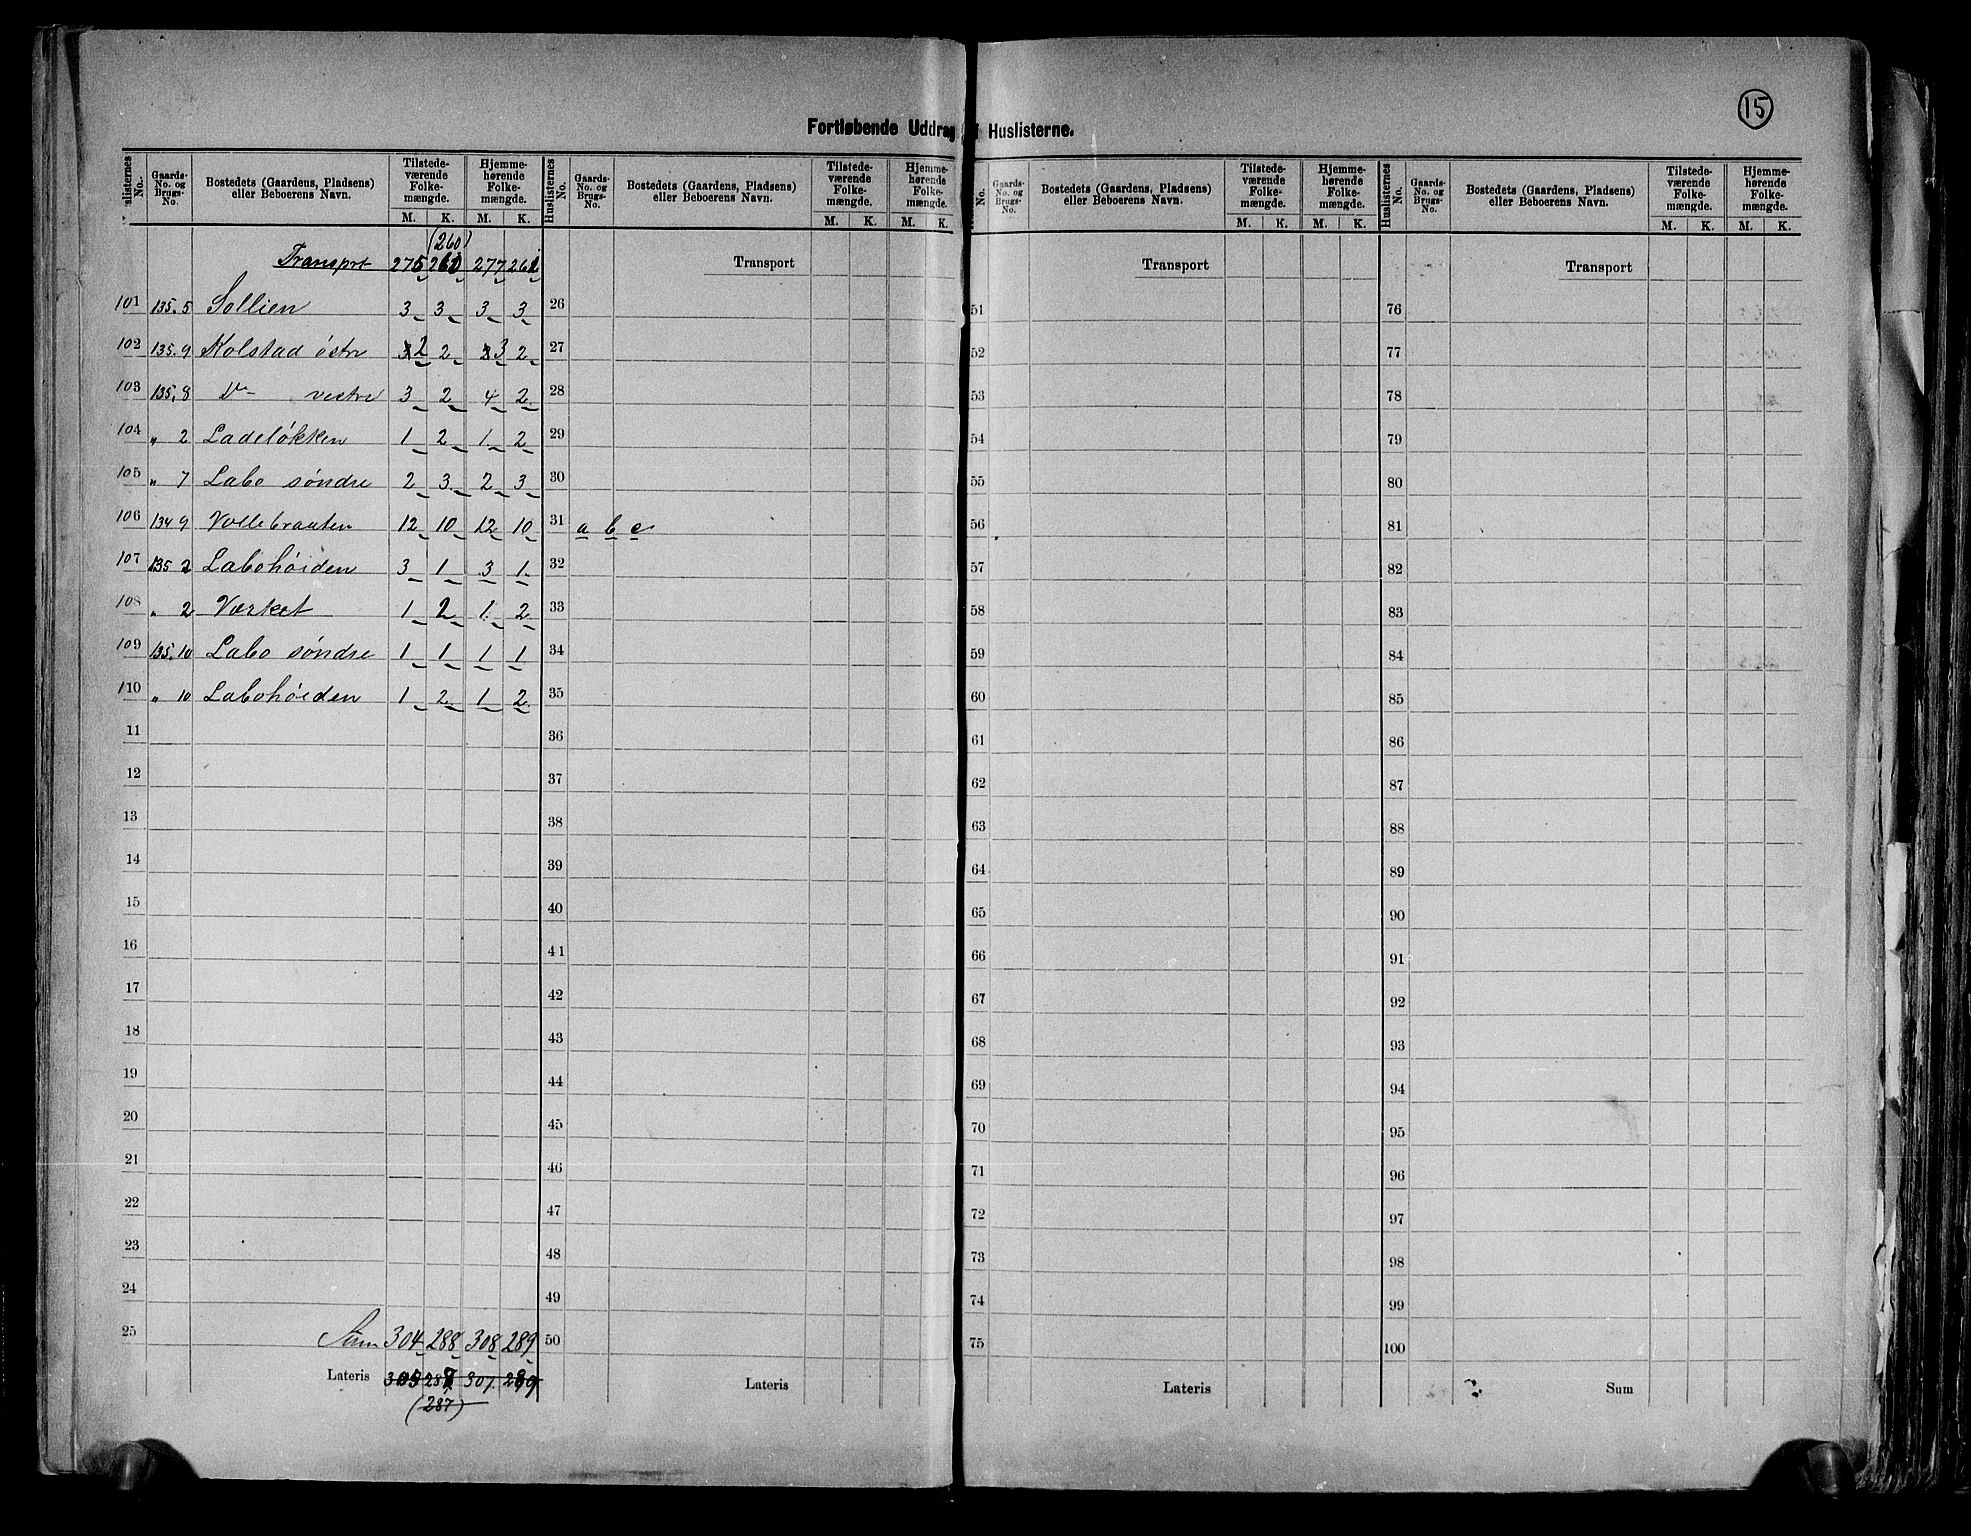 15
Fortløbende Uddrag Huslisterne.
Huslisternes No. Gaards-No. og Brugs-No. Bostedets (Gaardens, Pladsens) eller Beboerens Navn. Tilstede-værende Folke-mængde. M. K. Hjemme-hørende Folke-mængde. M. K. Huslisternes No. Gaards-No. og Brugs-No. Bostedets (Gaardens, Pladsens) eller Beboerens Navn. Tilstede-værende Folke-mængde. M. K. Hjemme-hørende Folke-mængde. M. K. No. Gaards-No. og Brugs-No. Bostedets (Gaardens, Pladsens) eller Beboerens Navn. Tilstede-værende Folke-mængde. M. K. Hjemme-hørende Folke-mængde. M. K. Huslisternes No. Gaards-No. og Brugs-No. Bostedets (Gaardens, Pladsens) eller Beboerens Navn. Tilstede-værende Folke-mængde. M. K. Hjemme-hørende Folke-mængde. M. K.
(260)
Transprt 275 260 277 261 Transport Transport Transport
101 135.5 Sollien 3 3 3 3 26 51 76
102 135.9 Kolstad østre 2 2 3 2 27 52 77
103 135.8 D⁰ vestre 3 2 4 2 28 53 78
104 " 2 Ladeløkken 1 2 1 2 29 54 79
105 " 7 Labo søndre 2 3 2 3 30 55 80
106 134 9 Vollebrauten 12 10 12 10 31 a b c 56 81
107 135 2 Labohøiden 3 1 3 1 32 57 82
108 " 2 Værket 1 2 1 2 33 58 83
109 135.10 Labo søndre 1 1 1 1 34 59 84
110 " 10 Labohøiden 1 2 1 2 35 60 85
11 36 61 86
12 37 62 87
13 38 63 88
14 39 64 89
15 40 65 90
16 41 66 91
17 42 67 92
18 43 68 93
19 44 69 94
20 45 70 95
21 46 71 96
22 47 72 97
23 48 73 98
24 49 74 99
25 Sum 304 288 308 289 50 75 100
Lateris 305 287 307 289 Lateris Lateris Sum
(287)